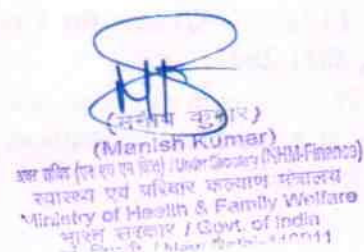 (मनीष कुमार)
(Manish Kumar)
अवर सचिव (एन एच एम वित्त) / Under Secretary (NHM-Finance)
स्वास्थ्य एवं परिवार कल्याण मंत्रालय
Ministry of Health & Family Welfare
भारत सरकार / Govt. of India
/ New 110011